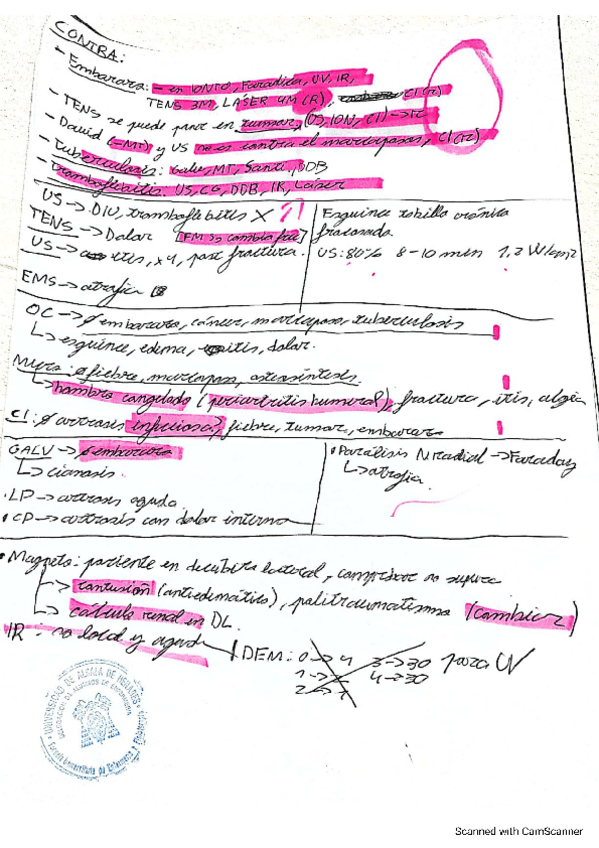 CONTRA:
- Embarazo: - en IONTO, Faradica, UV, IR,
TENS 3M, LÁSER 4M (R), CI (R)
- TENS se puede poner en tumor, (US, ION, CI) ->
- David (-MT) y US no es contra el marcapasos, CI (R)
- Tuberculosis: Galv, MT, DDB
- Tromboflebitis: US, CG, DDB, IR, Láser
US -> DIU, tromboflebitis X
TENS -> Dolor
US -> itis, x4, post fractura.
EMS -> atrofia
Esguince tobillo crónico
fracasado
US: 80% 8-10 min 1,2 W/cm2
OC -> Ø embarazo, cáncer, marcapaso, tuberculosis
↳ esguince, edema, itis, dolor.
Ø fiebre, marcapaso, osteosíntesis.
↳ hombro congelado (periartritis humeral), fractura, itis, algia
CI: Ø artrosis infecciosa, fiebre, tumor, embarazo
GALV -> Ø embarazo
↳ cianosis
· LP -> artrosis aguda
· CP -> artrosis con dolor interno
· Parálisis N radial -> Faraday
↳ atrofia
· Magneto: paciente en decúbito lateral, comprobar no supera
↳ contusión (antiedemático), politraumatismo (cambiar)
↳ cálculo renal en DL.
IR: no local y agudo
DEM: 0->4 3->30 para UV
4->30
UNIVERSIDAD DE ALCALA DE HENARES
Scanned with CamScanner